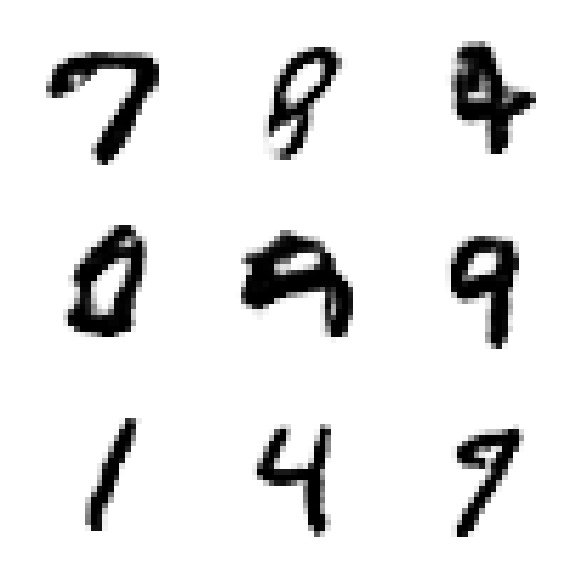 7 8 4
0 9 9
1 4 9